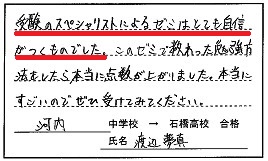 受験のスペシャリストによるゼミはとても自信
がつくものでした。このゼミで教わった勉強方
法をしたら本当に点数が上がりました。本当に
すごいのでぜひ受けてみてください。
河内 中学校 → 石橋高校 合格
氏名 渡辺 夢真